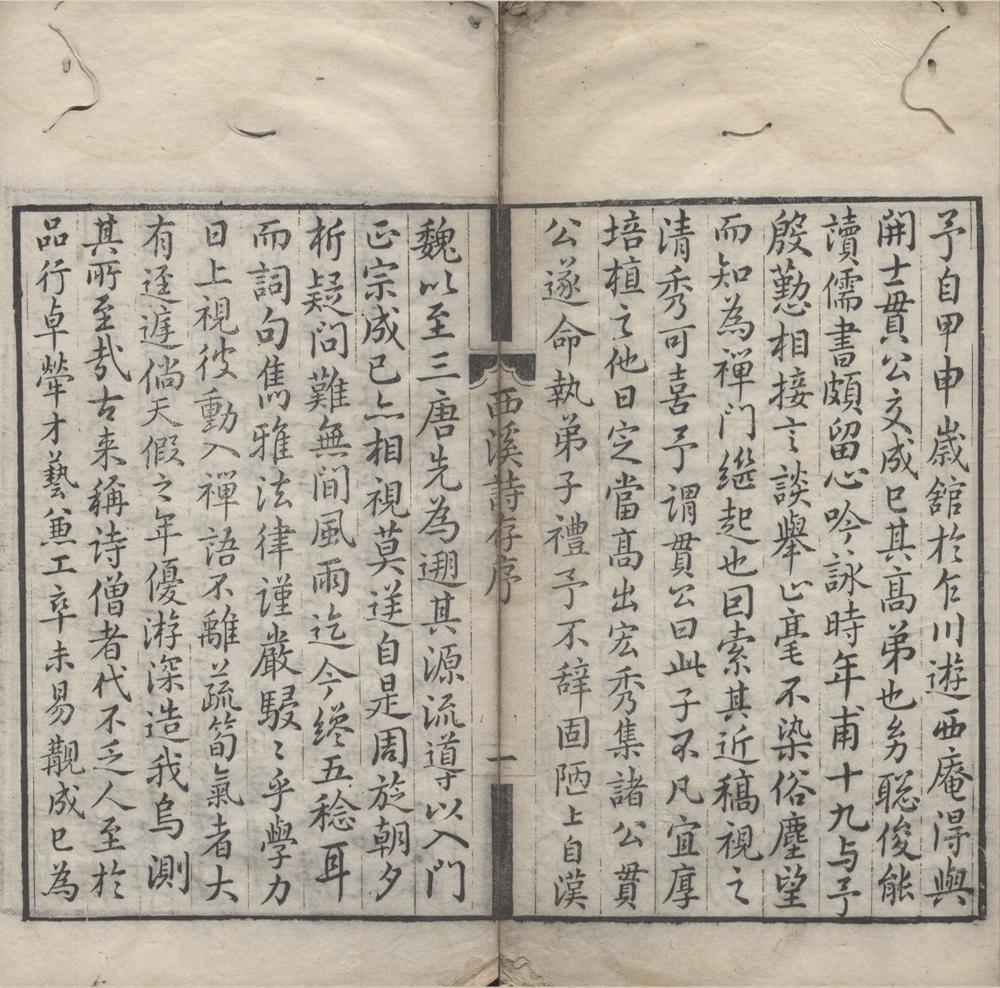 予自甲申歲舘於乍川遊西庵淂與
開士貫公交成巳其高弟也幼聡俊能
讀儒書頗留心吟詠時年甫十九与予
殷懃相接言談舉止毫不染俗塵望
而知為禪门継起也因索其近稿視之
清秀可喜予謂貫公曰此子不凡宜厚
培植之他日定當髙出宏秀集諸公貫
公遂命執弟子禮予不辞固陋上自漢
西溪詩存序
一
魏以至三唐先為遡其源流導以入門
正宗成巳亦相視莫逆自是周旋朝夕
析疑问難無間風雨迄今纔五稔耳
而詞句雋雅法律谨嚴駸〻乎學力
日上視彼動入禪語不離蔬筍氣者大
有逕遅倘天假之年優游深造我烏測
其所至哉古来稱诗僧者代不乏人至於
品行卓犖才藝兼工卒未易觀成巳為